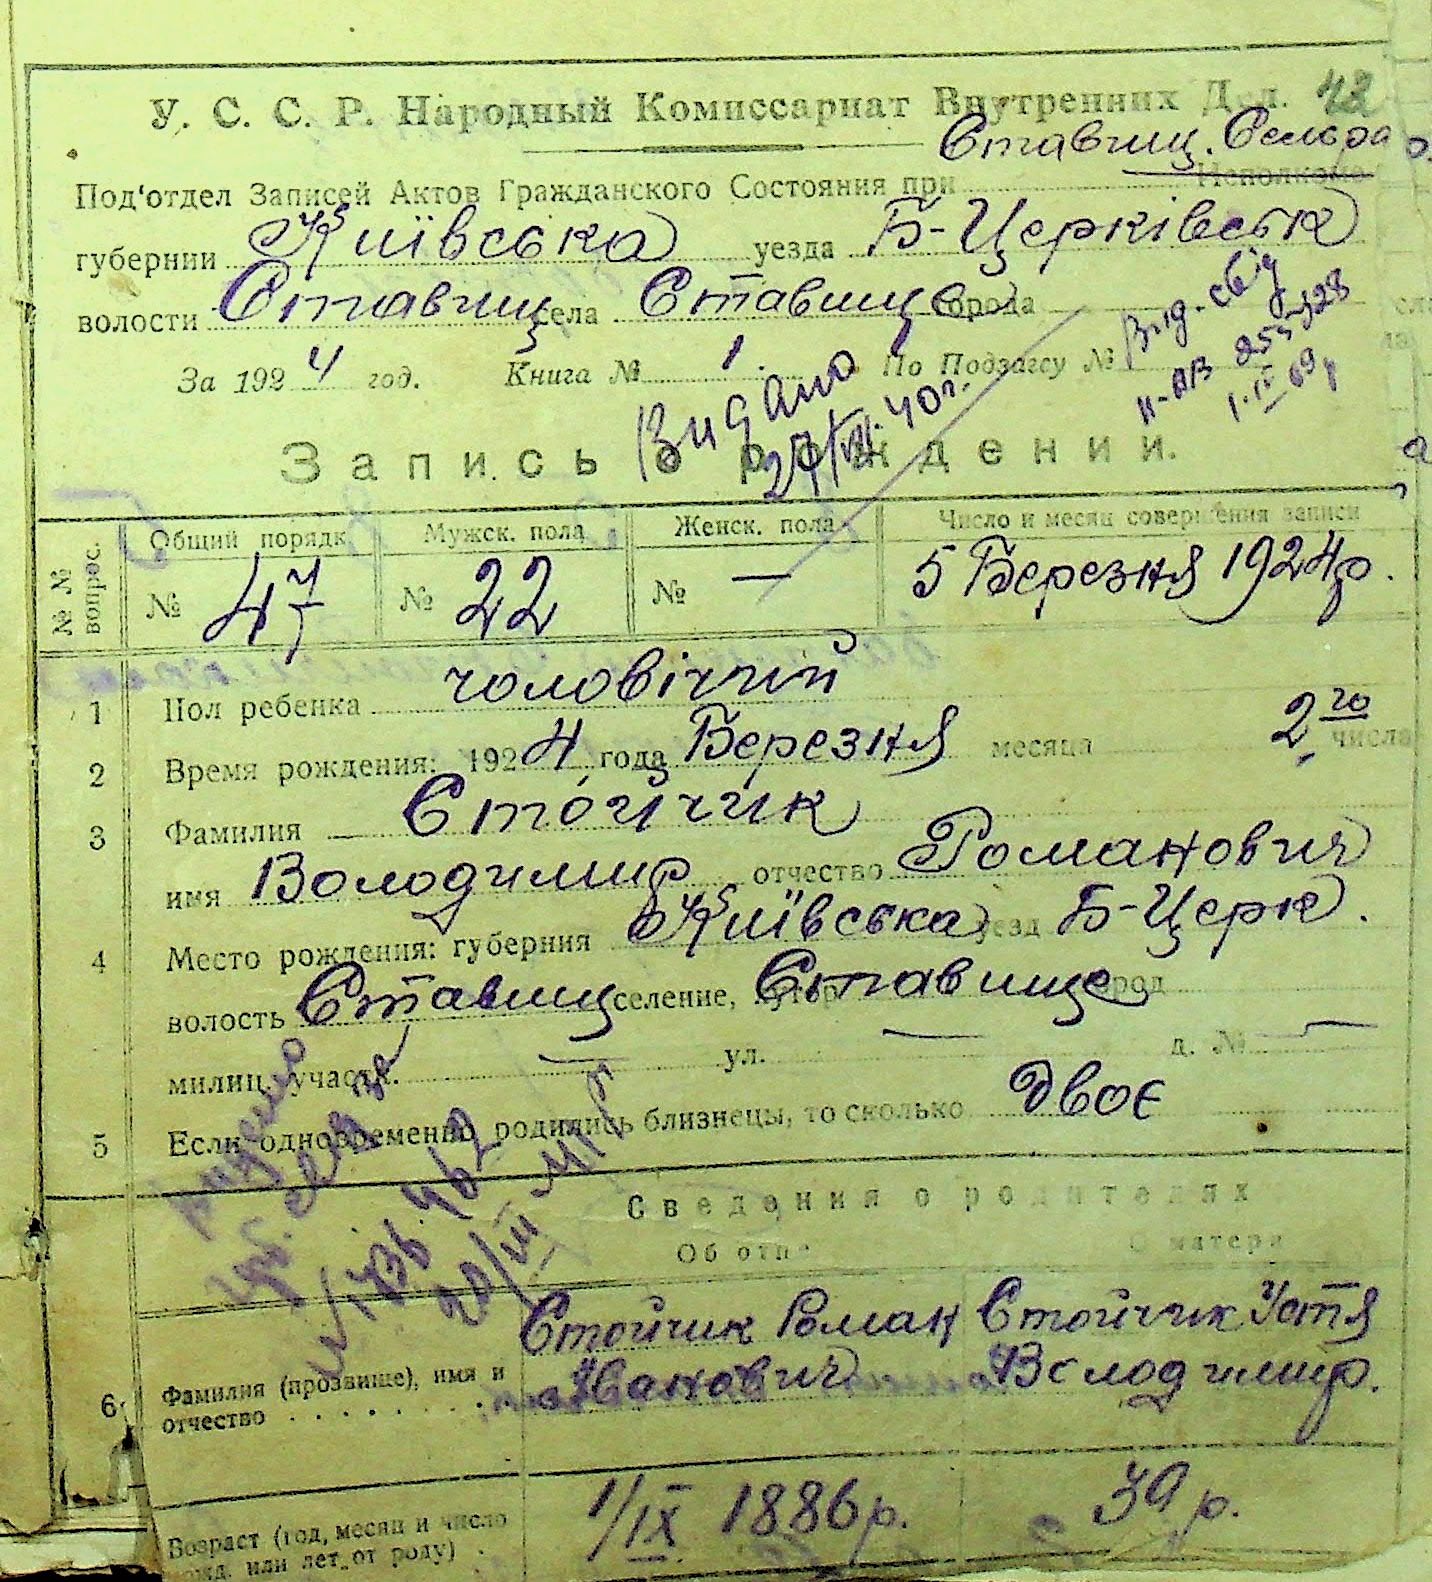 У. С. С. Р. Народный Комиссариат Внутренних Дел. 42
Ставищ. Сельра
Под'отдел Записей Актов Гражданского Состояния при Исполкоме
губернии Київська уезда Б-Церківська
волости Ставищ села Ставище города
За 1924 год. Книга № 1. По Подзагсу №
Видано 27/VII. 40 г.
Вид. свід
II-АВ 255328
1.IV 69 р
Запись о рождении.
№ № вопрос. Общий порядк. Мужск. пола Женск. пола Число и месяц совершения записи
№ 47 № 22 № — 5 Березня 1924 р.
1 Пол ребенка чоловічий
2 Время рождения: 1924 года Березня месяца 2го числа
3 Фамилия Стойчик
имя Володимир отчество Романович
4 Место рождения: губерния Київська уезд Б-Церк.
волость Ставищ селение, хутор Ставище город
милиц. участк. — ул. — д. № —
5 Если одновременно родились близнецы, то сколько двоє
Сведения о родителях
Об отце О матери
6 Фамилия (прозвище), имя и отчество
Стойчик Роман Иванович
Стойчик Устя Володимир.
Возраст (год, месяц и число рожд. или лет от роду)
1/IX 1886 р. 39 р.